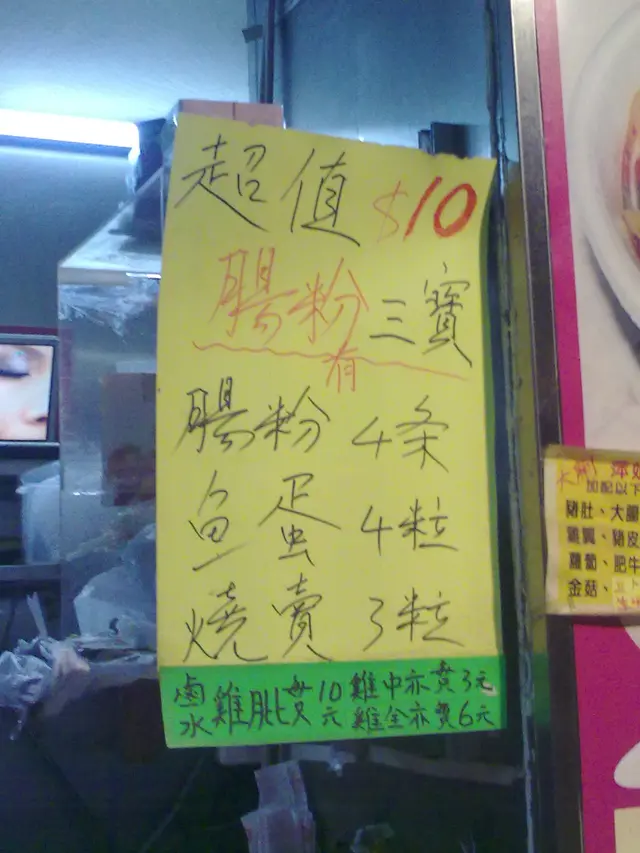 超值 $10
腸粉三寶
有
腸粉 4条
魚蛋 4粒
燒賣 3粒
鹵水雞肶
10元
3元
6元
加配以下
豬肚、大腸
雞翼、豬皮
蘿蔔、肥牛
金菇、